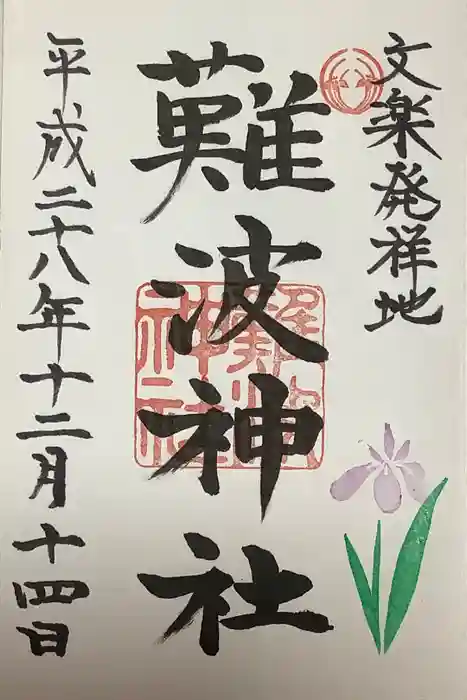 文楽発祥地
難波神社
難波神社
平成二十八年十二月十四日